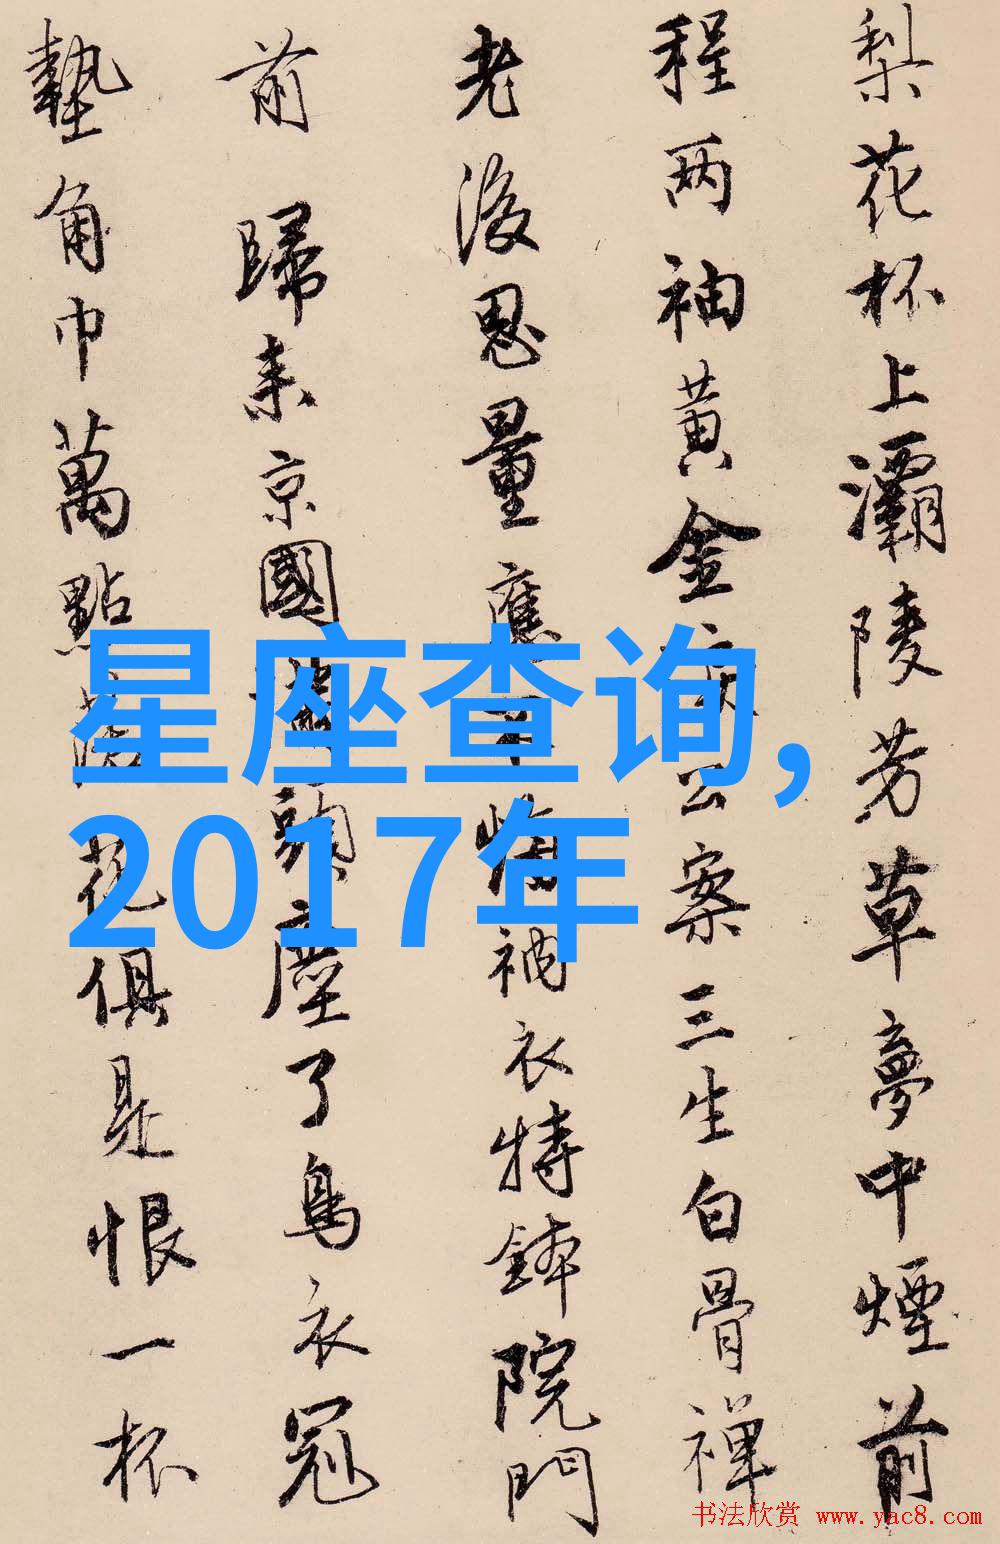 梨花杯上灞陵芳草夢中煙前
程两袖黄金公案三生白骨禪
老後思量應不悔衲衣持鉢院門
前歸来京國頭塵了烏衣冠
墊角巾萬點落花俱是恨一杯
星座查询,
2017年
书法欣赏 www.yac8.com